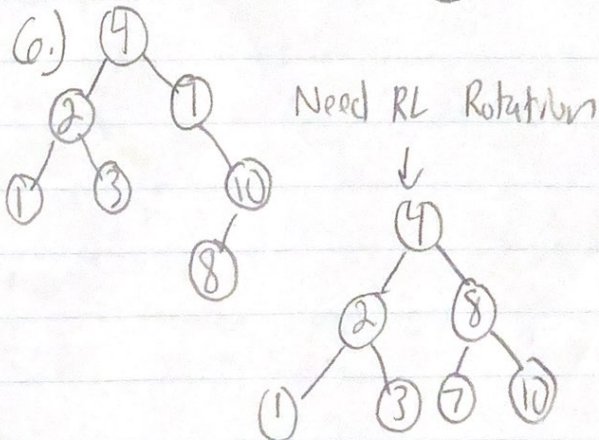 6.)
4
2 7
1 3 10
8
Need RL Rotation
4
2 8
1 3 7 10